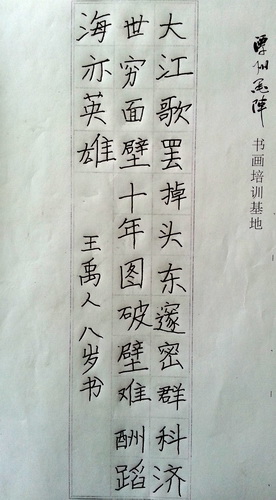 书画培训基地
大江歌罢掉头东邃密群科济
世穷面壁十年图破壁难酬蹈
海亦英雄
王禹人八岁书